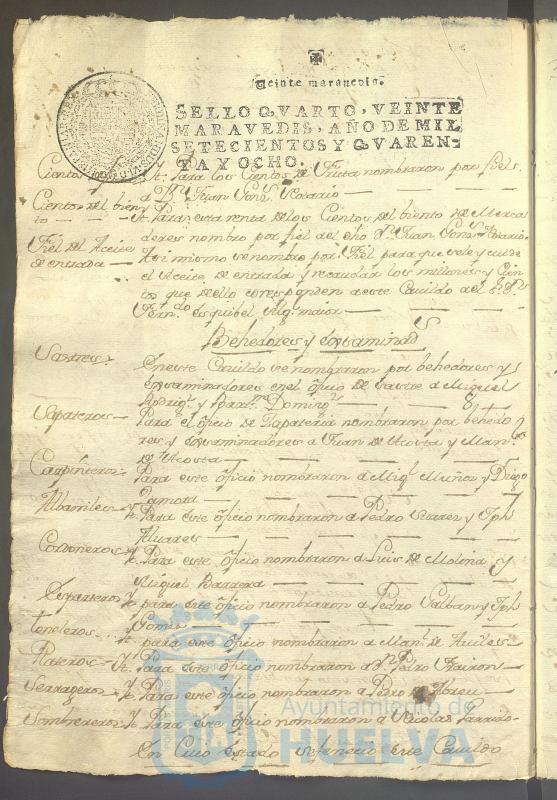 Veinte maravedis.
SELLO QVARTO, VEINTE
MARAVEDIS, AÑO DE MIL
SETECIENTOS Y QVAREN-
TA Y OCHO.
Cientos Yt. Para los Cientos de Fruta nombraron por fiel
a Dn. Juan Gonz. Rosario
Cientos del vien- Yt. Para esta renta de los Cientos del biento de Merca
to deres nombro por fiel del dho Dn. Juan Gonz. Rosario
Fiel del Aceite Asi mismo se nombro por Fiel para que vele y cuide
de entrada el Aceite de entrada y recaudar los millones y Cien
tos que dello corresponden a este Cavildo al
Fern. Esquibel Alg. maior
Behedores y Exsaminads
Sastres. En este Cavildo se nombraron por behedores y
Exsaminadores en el oficio de sastre a Miguel
Rodrig. y Bartme. Doming.
Sapateros Para el oficio de Zapateria nombraron por behedo
res y Exsaminadores a Juan de Acosta y Man.
de Acosta
Carpinteros Para este oficio nombraron a Mig. Muñoz y Diego
Zamora
Albañiles Yt. Para este oficio nombraron a Pedro Suarez y Jph
Alvarez
Cordoneros Yt. Para este oficio nombraron a Luis de Molina y
Miguel Barrera
Esparteros Yt. para este oficio nombraron a Pedro Galban y Jph
Gomez
toneleros Yt. para este oficio nombraron a Man. de Aviles
Plateros Yt. Para este oficio nombraron a Dn. Pedro
Serrageros Yt. Para este oficio nombraron a Pedro Abreu
Sombrereros Yt. Para este oficio nombraron a Nicolas Garrido
En Cuio estado se fenecio este Cavildo
Ayuntamiento de
HUELVA